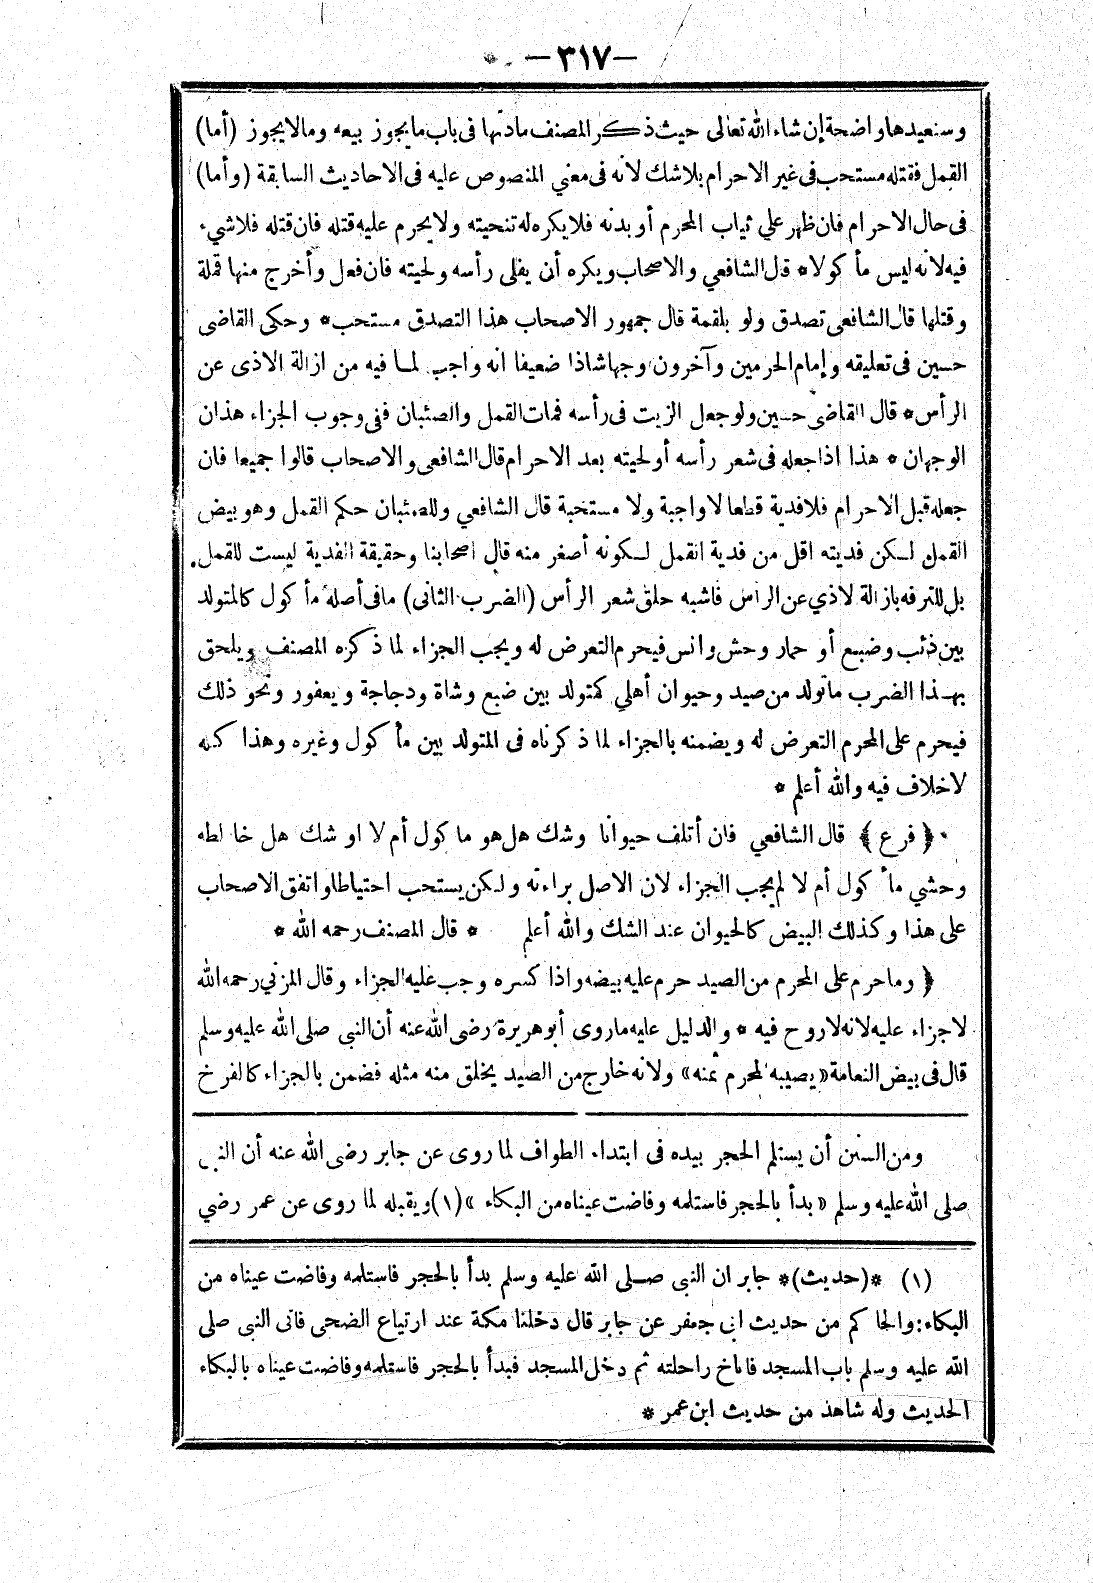 — ٣١٧ —
وسنعيدها واضحة إن شاء الله تعالى حيث ذكر المصنف مادتها فى باب ما يجوز بيعه ومالا يجوز (أما)
القمل فقتله مستحب فى غير الاحرام بلا شك لانه فى معني المنصوص عليه فى الاحاديث السابقة (وأما)
فى حال الاحرام فان ظهر علي ثياب المحرم أو بدنه فلا يكره له تنحيته ولا يحرم عليه قتله فان قتله فلاشىء
فيه لانه ليس مأكولا * قال الشافعي والاصحاب ويكره أن يفلى رأسه ولحيته فان فعل وأخرج منها قملة
وقتلها قال الشافعى تصدق ولو بلقمة قال جمهور الاصحاب هذا التصدق مستحب * وحكى القاضى
حسين فى تعليقه وإمام الحرمين وآخرون وجها شاذا ضعيفا انه واجب لما فيه من ازالة الاذى عن
الرأس * قال القاضى حسين ولو جعل الزيت فى رأسه فمات القمل والصئبان ففى وجوب الجزاء هذان
الوجهان * هذا اذا جعله فى شعر رأسه أو لحيته بعد الاحرام قال الشافعى والاصحاب قالوا جميعا فان
جعله قبل الاحرام فلا فدية قطعا لا واجبة ولا مستحبة قال الشافعي وللصئبان حكم القمل وهو بيض
القمل لكن فديته اقل من فدية القمل لكونه أصغر منه قال اصحابنا وحقيقة الفدية ليست للقمل
بل للترفه بازالة لاذي عن الرأس فاشبه حلق شعر الرأس (الضرب الثانى) مافى أصله مأكول كالمتولد
بين ذئب وضبع أو حمار وحش وانس فيحرم التعرض له ويجب الجزاء لما ذكره المصنف ويلحق
بهذا الضرب ماتولد من صيد وحيوان أهلي كمتولد بين ضبع وشاة ودجاجة ويعفور ونحو ذلك
فيحرم على المحرم التعرض له ويضمنه بالجزاء لما ذكرناه فى المتولد بين مأكول وغيره وهذا كله
لاخلاف فيه والله أعلم *
﴿ فرع ﴾ قال الشافعي فان أتلف حيوانا وشك هل هو ماكول أم لا او شك هل خالطه
وحشي مأكول أم لا لم يجب الجزاء لان الاصل براءته ولكن يستحب احتياطا واتفق الاصحاب
على هذا وكذلك البيض كالحيوان عند الشك والله أعلم * قال المصنف رحمه الله *
﴿ وما حرم على المحرم من الصيد حرم عليه بيضه واذا كسره وجب عليه الجزاء وقال المزني رحمه الله
لاجزاء عليه لانه لاروح فيه * والدليل عليه ماروى أبو هريرة رضى الله عنه أن النبى صلى الله عليه وسلم
قال فى بيض النعامة «يصيبه المحرم ثمنه» ولانه خارج من الصيد يخلق منه مثله فضمن بالجزاء كالفرخ
ومن السنن أن يستلم الحجر بيده فى ابتداء الطواف لما روى عن جابر رضى الله عنه أن النبى
صلى الله عليه وسلم «بدأ بالحجر فاستلمه وفاضت عيناه من البكاء» (١) ويقبله لما روى عن عمر رضي
(١) *(حديث)* جابر ان النبى صلى الله عليه وسلم بدأ بالحجر فاستلمه وفاضت عيناه من
البكاء: والحاكم من حديث ابى جعفر عن جابر قال دخلنا مكة عند ارتياع الضحى فاتى النبى صلى
الله عليه وسلم باب المسجد فاناخ راحلته ثم دخل المسجد فبدأ بالحجر فاستلمه وفاضت عيناه بالبكاء
الحديث وله شاهد من حديث ابن عمر *